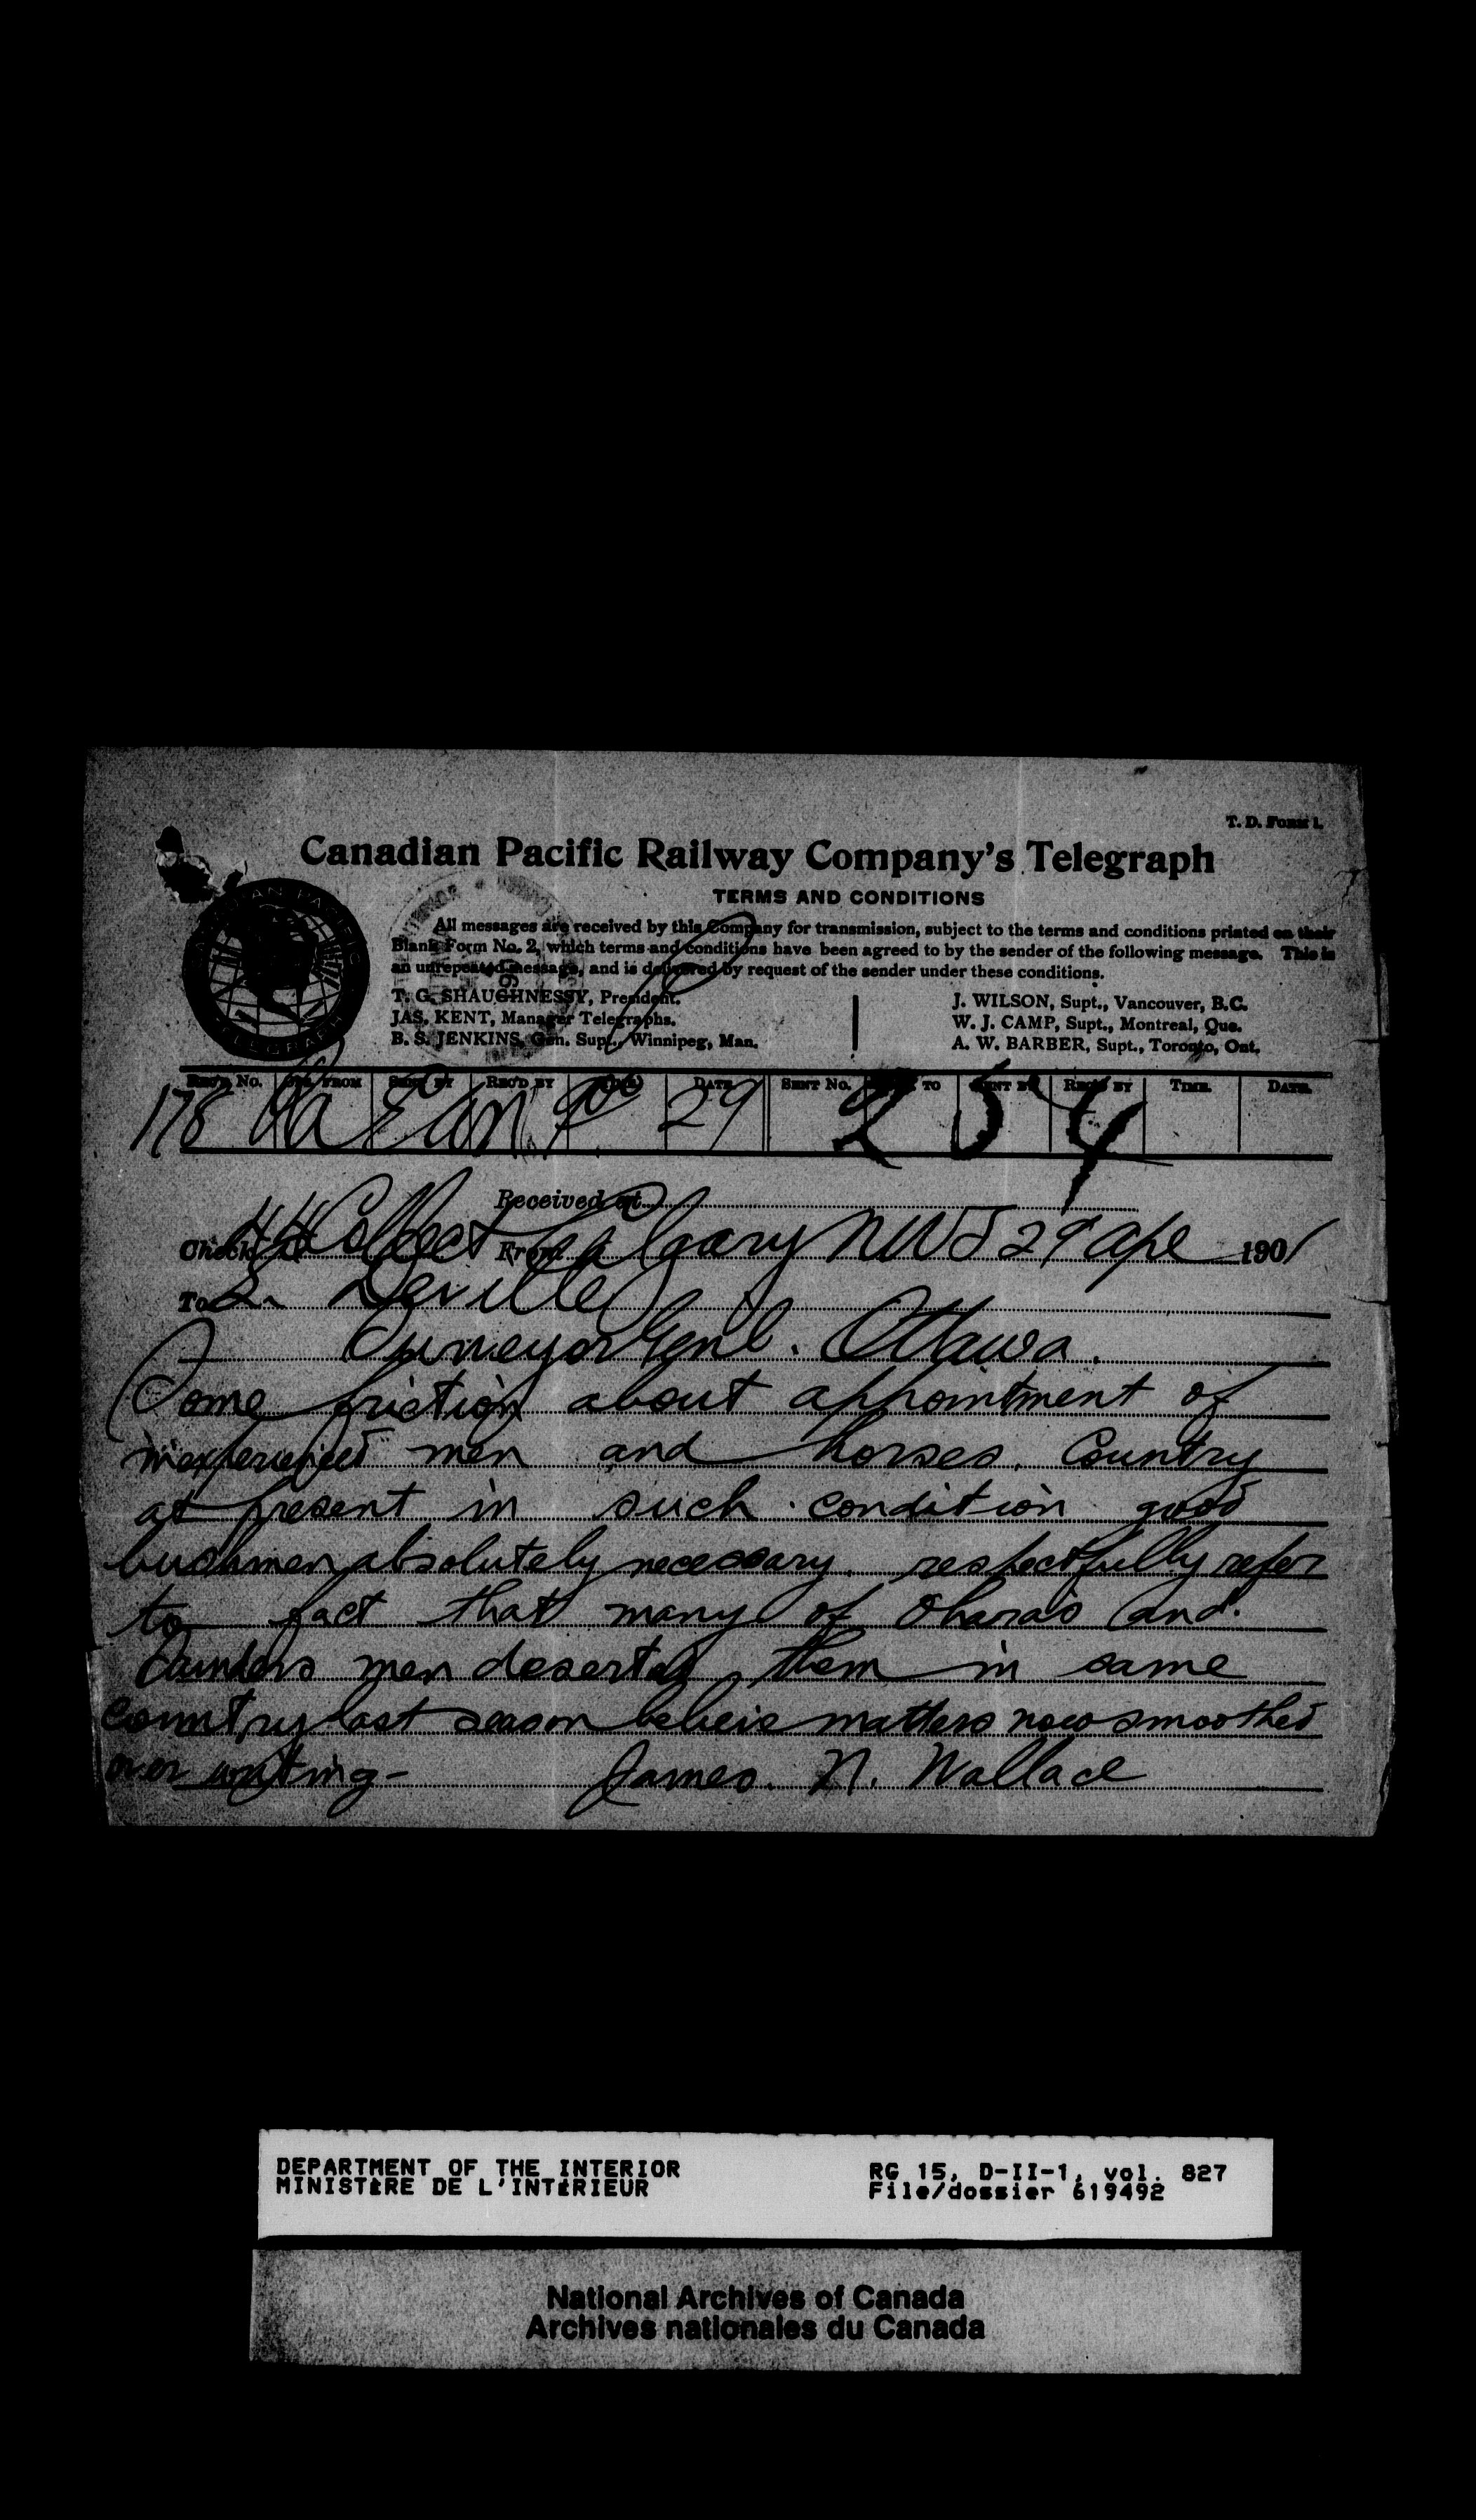 T. D. Form 1.
Canadian Pacific Railway Company's Telegraph
TERMS AND CONDITIONS
All messages are received by this Company for transmission, subject to the terms and conditions printed on their
Blank Form No. 2, which terms and conditions have been agreed to by the sender of the following message. This is
an unrepeated message, and is delivered by request of the sender under these conditions.
T. G. SHAUGHNESSY, President.
JAS. KENT, Manager Telegraphs.
B. S. JENKINS, Gen. Supt., Winnipeg, Man.
J. WILSON, Supt., Vancouver, B.C.
W. J. CAMP, Supt., Montreal, Que.
A. W. BARBER, Supt., Toronto, Ont.
REC'D No. FROM SENT BY REC'D BY TIME DATE SENT No. TO SENT BY REC'D BY TIME. DATE.
178 29 254
Received at
Check 44 Collect From Calgary NWT 29 Apl 1901
To Deville
Surveyor Genl. Ottawa.
Some friction about appointment of
inexperienced men and horses. Country
at present in such condition good
bushmen absolutely necessary. respectfully refer
to fact that many of Oharas and
Saunders men deserted them in same
country last season believe matters now smoothed
over writing - James. N. Wallace
DEPARTMENT OF THE INTERIOR
MINISTÈRE DE L'INTÉRIEUR
RG 15, D-II-1, vol. 827
File/dossier 619492
National Archives of Canada
Archives nationales du Canada